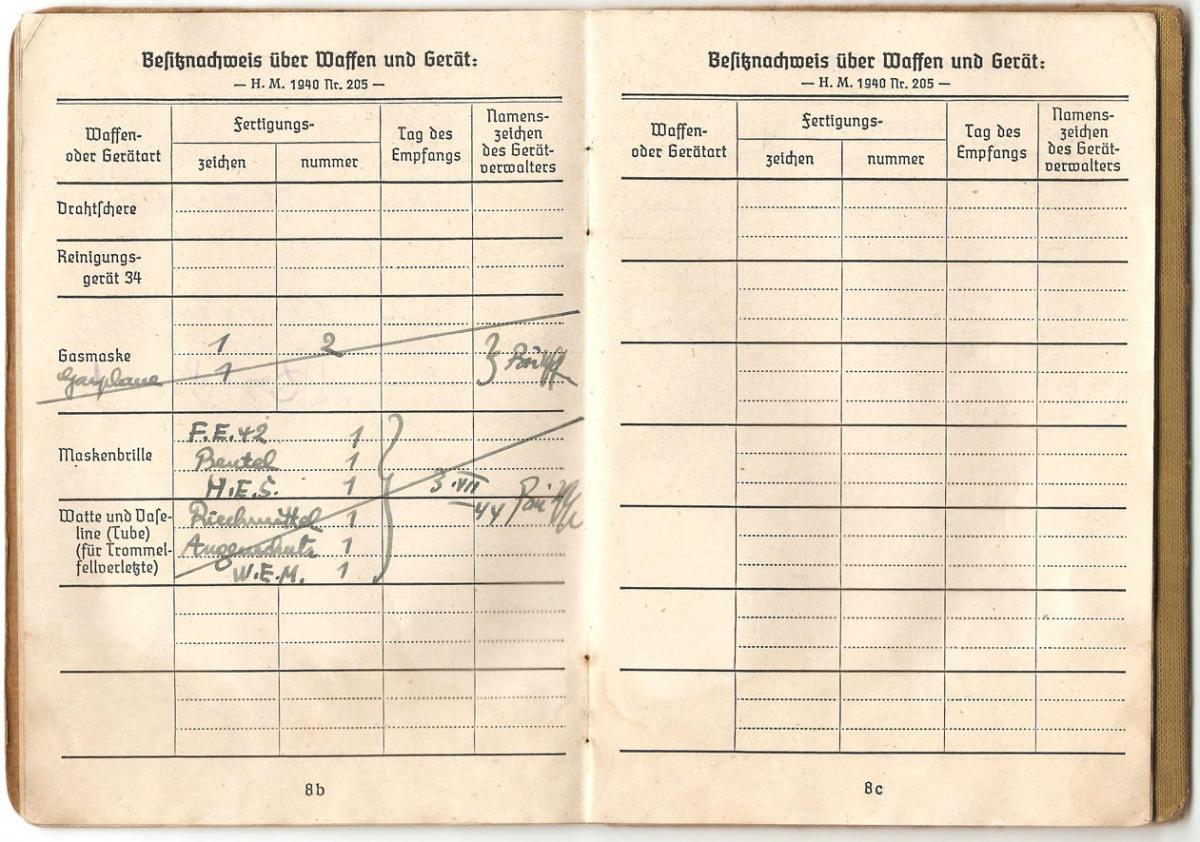 Besitznachweis über Waffen und Gerät:
— H. M. 1940 Nr. 205 —
Waffen-
oder Gerätart
Fertigungs-
zeichen
nummer
Tag des
Empfangs
Namens-
zeichen
des Gerät-
verwalters
Drahtschere
Reinigungs-
gerät 34
Gasmaske 1 2
Gasplane 1
Maskenbrille
F.E.42 1
Beutel 1
H.E.S. 1
3.VII
44
Watte und Vase-
line (Tube)
(für Trommel-
fellverletzte)
Riechmittel 1
Augenschutz 1
W.E.M. 1
8b
Besitznachweis über Waffen und Gerät:
— H. M. 1940 Nr. 205 —
Waffen-
oder Gerätart
Fertigungs-
zeichen
nummer
Tag des
Empfangs
Namens-
zeichen
des Gerät-
verwalters
8c